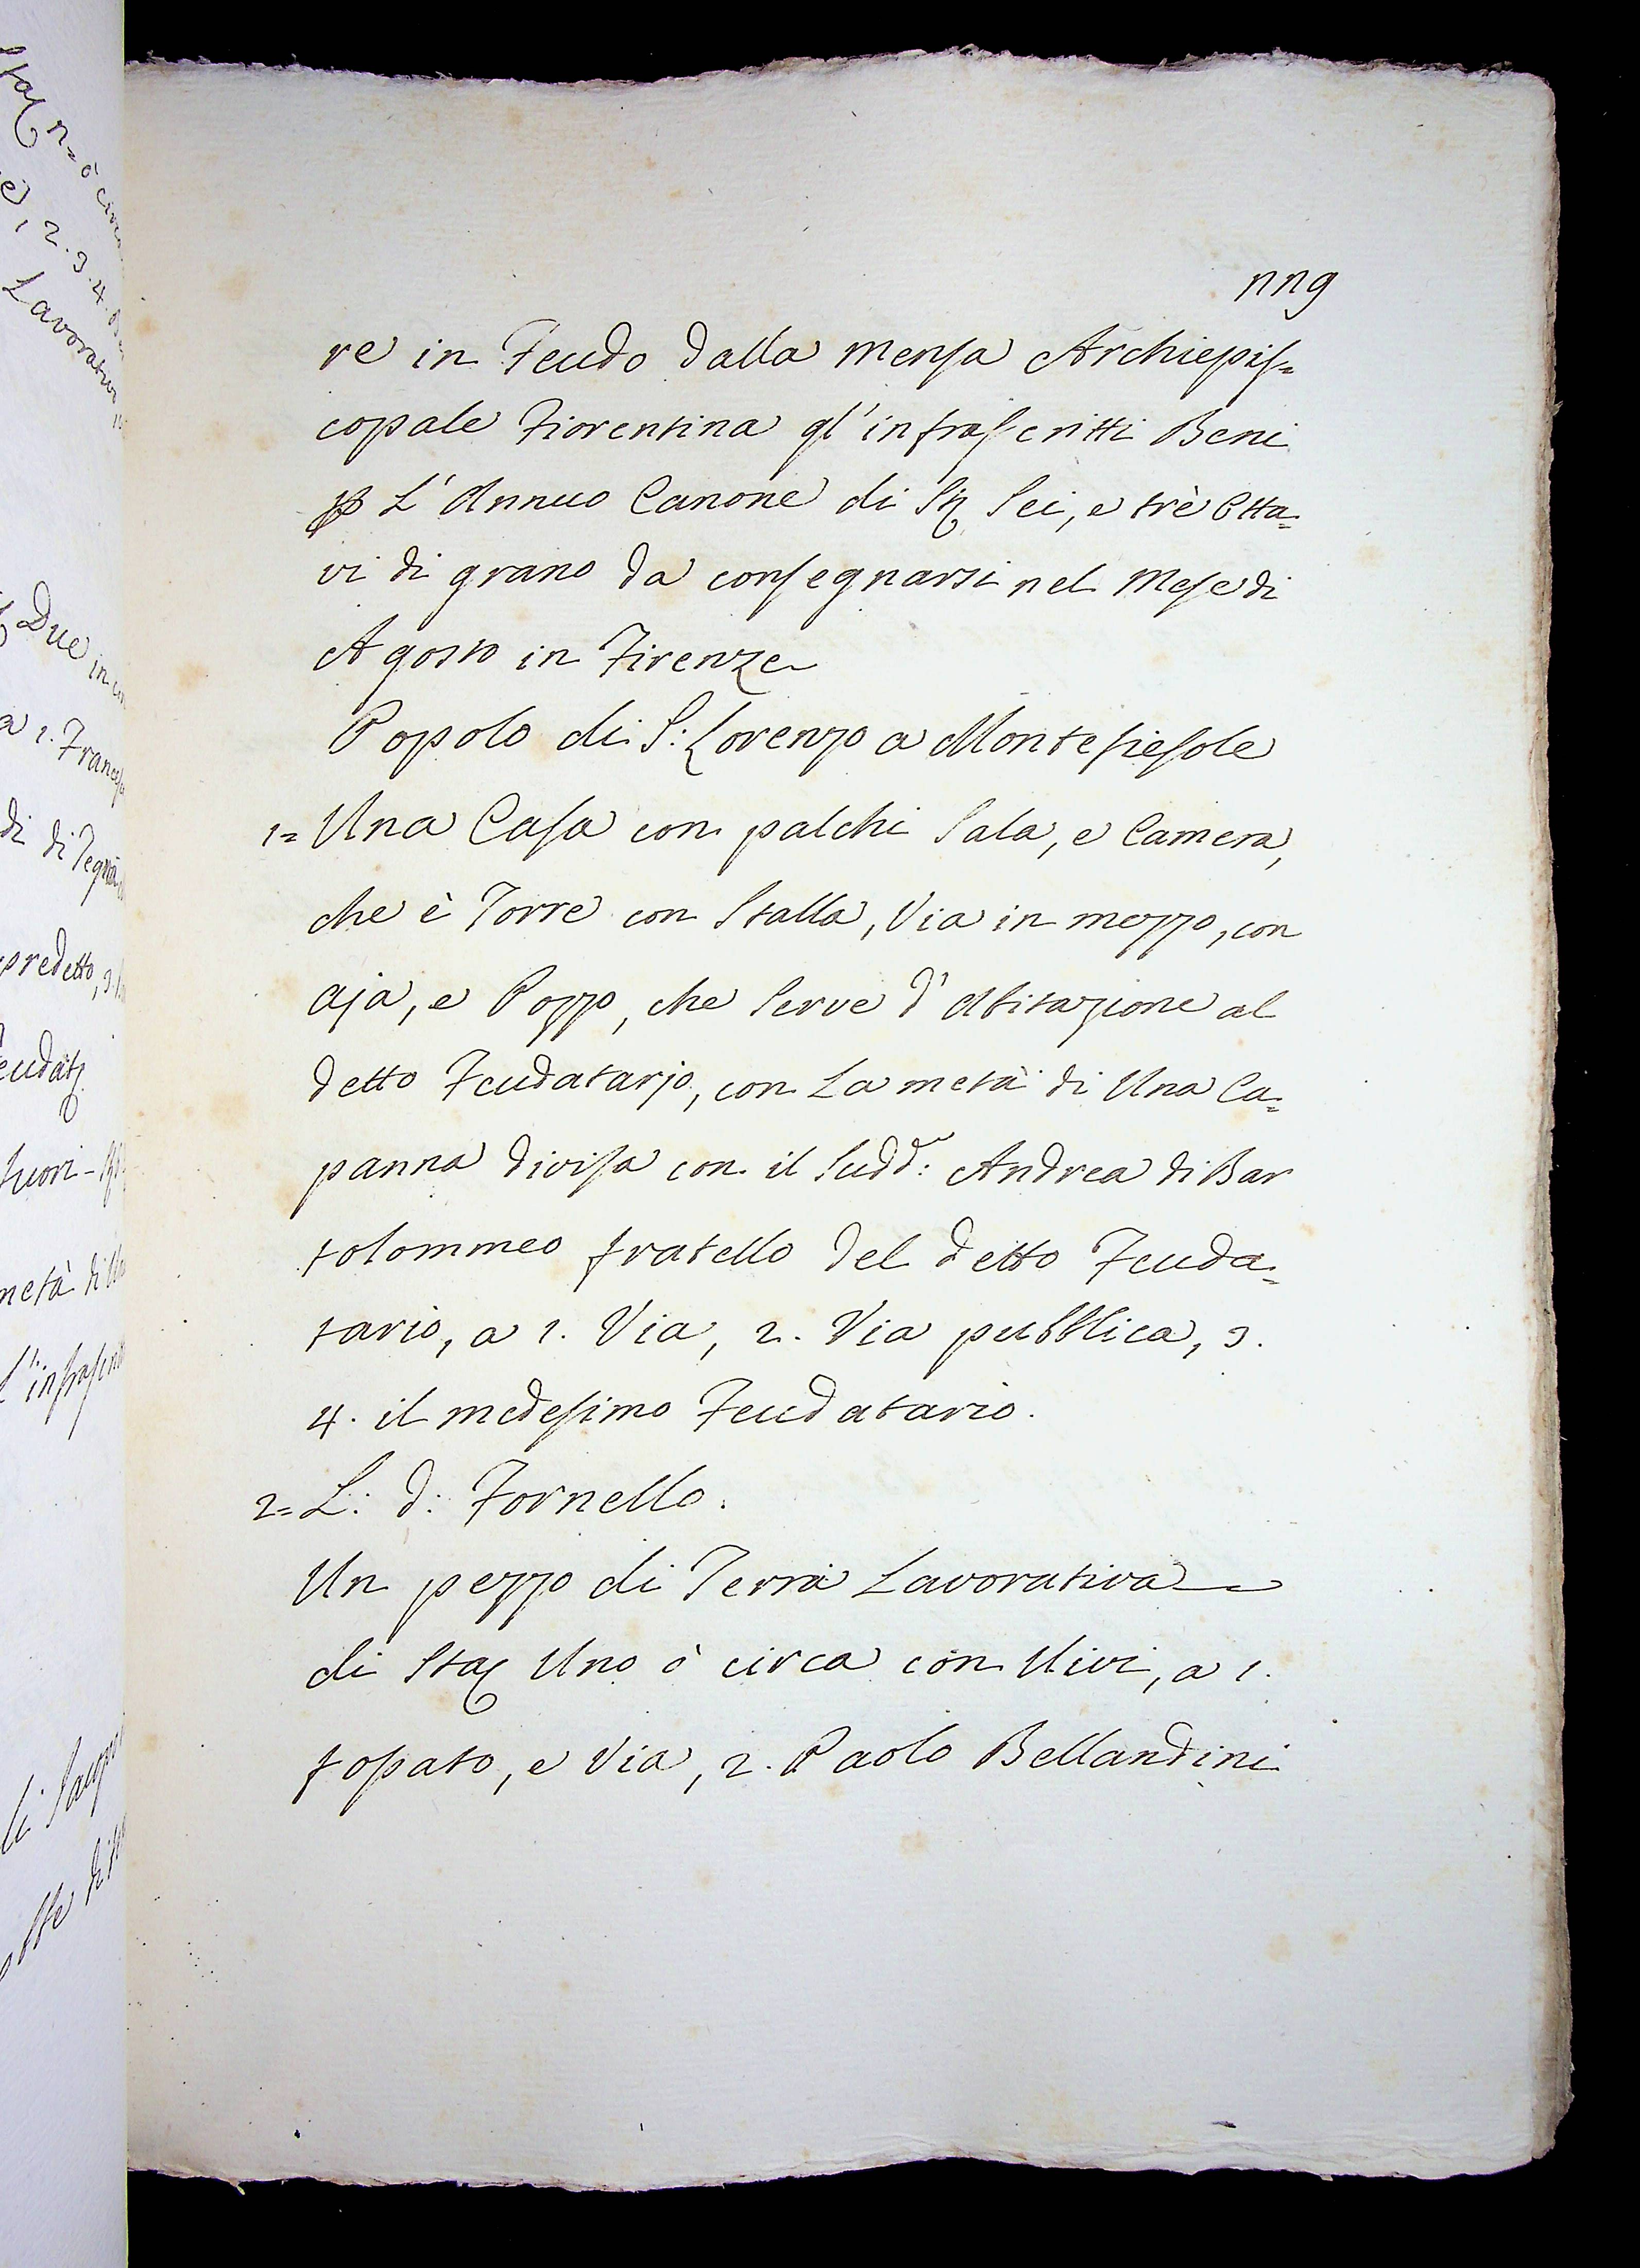 119
re in Feudo dalla mensa Archiepis=
copale Fiorentina gl'infrascritti Beni
p L'Annuo Canone di Sta Sei, e trè Otta=
vi di grano da consegnarsi nel Mese di
Agosto in Firenze
Popolo di S: Lorenzo a Montefiesole
1= Una Casa con palchi Sala, e Camera,
che è Torre con Stalla, Via in mezzo, con
aja, e Pozzo, che Serve d'Abitazione al
detto Feudatarjo, con La metà di Una Ca=
panna divisa con il Sudd: Andrea di Bar
tolommeo fratello del detto Feuda=
tario, a 1. Via, 2. Via pubblica, 3.
4. il medesimo Feudatario.
2= L: d: Fornello.
Un pezzo di Terra Lavorativa
di Sta Uno ò circa con Ulivi, a 1.
fossato, e Via, 2. Paolo Bellandini